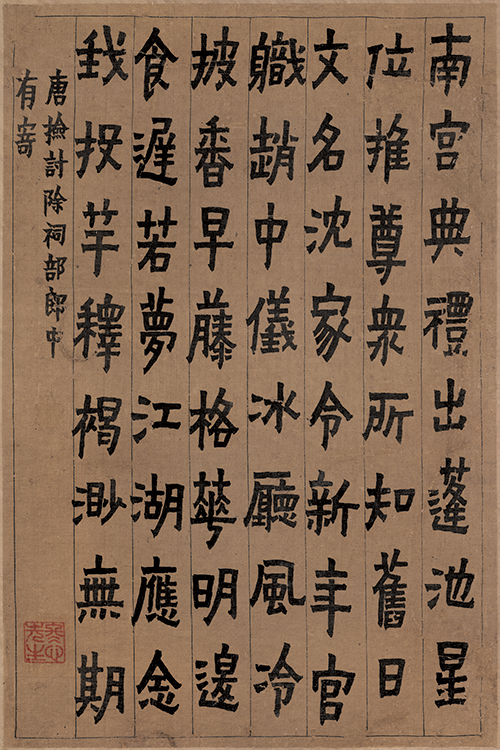 南宮典禮出蓬池星
位推尊衆所知舊日
文名沈家令新年官
職趙中儀冰廳風冷
披香早藤格華明邊
食遲若夢江湖應念
我投竿釋褐渺無期
唐撿討除祠部郎中
有寄
冬心先生